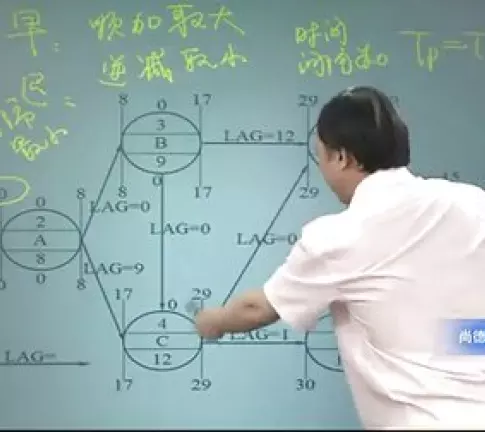 早: 顺加取大
逆减取小
时间
间隔为0
Tp=T
迟:
取小
8 0 17
3
B
9
8 0 17
LAG=12
29
29
LAG=0
LAG=0
LAG=0
0 0 8
2
A
8
0 8
LAG=9
17 0 29
4
C
12
17 29
LAG=1
30
LAG=
尚德